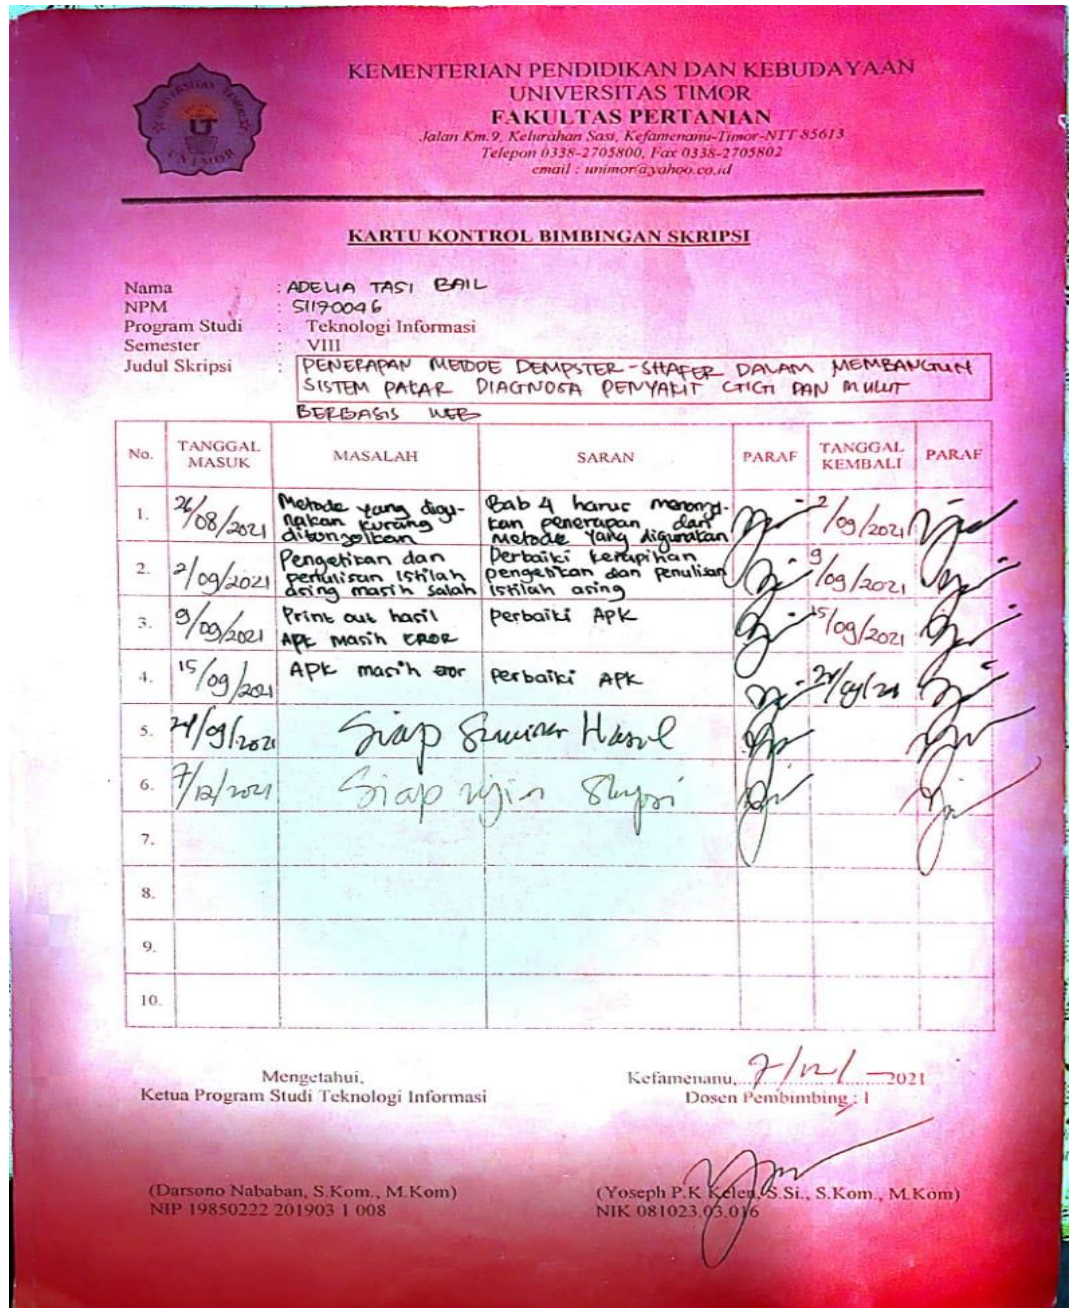 KEMENTERIAN PENDIDIKAN DAN KEBUDAYAAN
UNIVERSITAS TIMOR
FAKULTAS PERTANIAN
Jalan Km.9, Kelurahan Sasi, Kefamenanu-Timor-NTT 85613
Telepon 0338-2705800, Fax 0338-2705802
email : unimor@yahoo.co.id
UNIVERSITAS TIMOR
UT
UNIMOR
KARTU KONTROL BIMBINGAN SKRIPSI
Nama : ADELIA TASI BAIL
NPM : 51170046
Program Studi : Teknologi Informasi
Semester : VIII
Judul Skripsi : PENERAPAN METODE DEMPSTER-SHAFER DALAM MEMBANGUN
SISTEM PAKAR DIAGNOSA PENYAKIT GIGI DAN MULUT
BERBASIS WEB
No. TANGGAL MASUK MASALAH SARAN PARAF TANGGAL KEMBALI PARAF
1. 26/08/2021 Metode yang digu- Bab 4 harus 2/09/2021
nakan kurang kan penerapan dari
ditonjolkan metode yang digunakan
2. 2/09/2021 Pengetikan dan Perbaiki kerapihan 9/09/2021
penulisan istilah pengetikan dan penulisan
asing masih salah istilah asing
3. 9/09/2021 Print out hasil Perbaiki APK 15/09/2021
APK Masih EROR
4. 15/09/2021 APK masih eror Perbaiki APK 24/09/21
5. 24/09/2021 Siap Seminar Hasil
6. 7/12/2021 Siap ujian Skripsi
7.
8.
9.
10.
Mengetahui,
Ketua Program Studi Teknologi Informasi
(Darsono Nababan, S.Kom., M.Kom)
NIP 19850222 201903 1 008
Kefamenanu, 7/12/ 2021
Dosen Pembimbing : I
(Yoseph P.K Kelen, S.Si., S.Kom., M.Kom)
NIK 081023.03.016